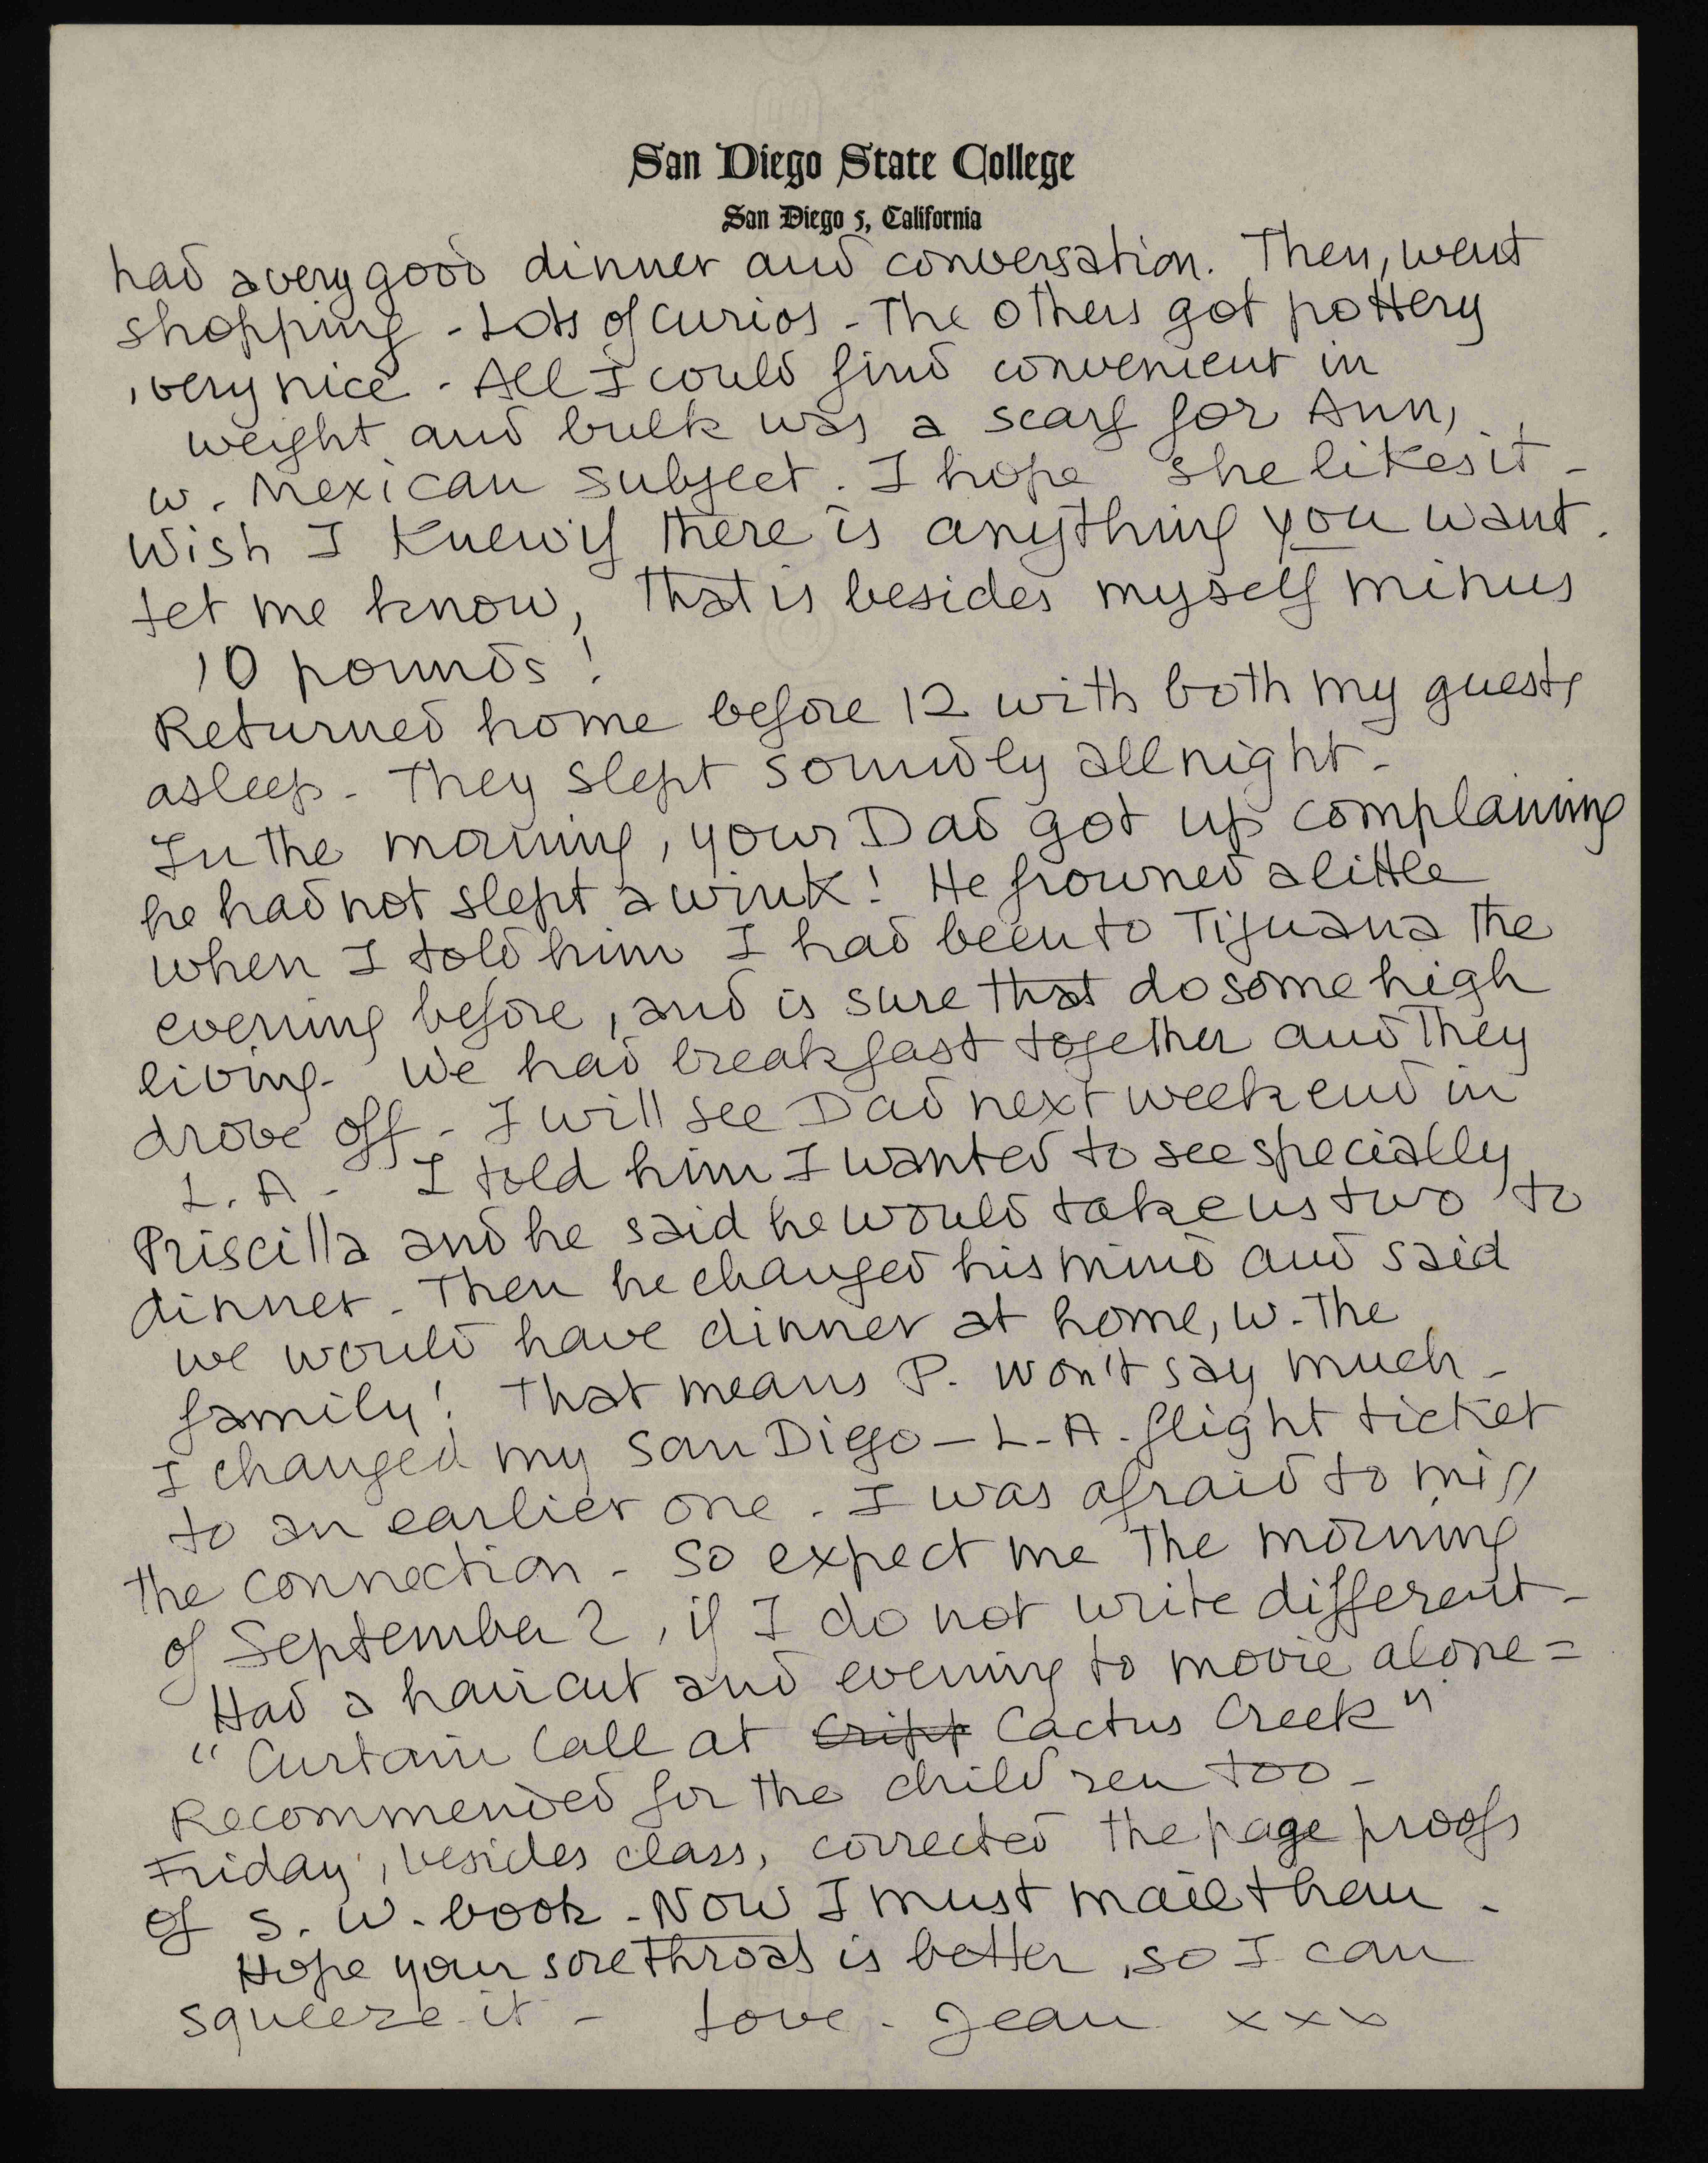 San Diego State College
San Diego 5, California
had a very good dinner and conversation. Then, went
shopping - Lots of curios - The others got pottery
, very nice - All I could find convenient in
weight and bulk was a scarf for Ann,
w. Mexican subject. I hope she likes it -
Wish I knew if there is anything you want.
Let me know, that is besides myself minus
10 pounds!
Returned home before 12 with both my guests
asleep - They slept soundly all night -
In the morning, your Dad got up complaining
he had not slept a wink! He frowned a little
when I told him I had been to Tijuana the
evening before, and is sure that do some high
living - We had breakfast together and they
drove off - I will see Dad next weekend in
L. A - I told him I wanted to see specially
Priscilla and he said he would take us two to
dinner - Then he changed his mind and said
we would have dinner at home, w. the
family! That means P. won't say much -
I changed my San Diego - L - A - flight ticket
to an earlier one - I was afraid to miss
the connection - So expect me the morning
of September 2, if I do not write different -
Had a haircut and evening to movie alone =
"Curtain Call at Cactus Creek"
Recommended for the children too -
Friday, besides class, corrected the page proofs
of S. W. book - Now I must mail them -
Hope your sore throat is better, so I can
squeeze it - Love - Jean xxx